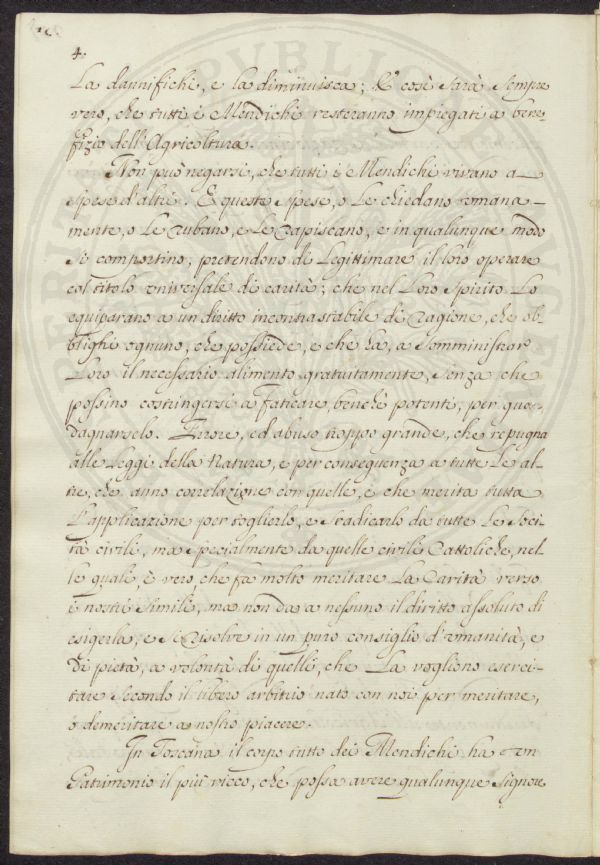 4.
La dannifichi, e la diminuisca; E così sarà sempre
vero, che tutti i Mendichi resteranno impiegati a bene-
fizio dell'Agricoltura.
Non può negarsi, che tutti i Mendichi vivano a
spese d'altri. E queste spese, o le chiedano umana-
mente, o le rubano, e le rapiscano, e in qualunque modo
si comportino, pretendono di legittimare il loro operare
col titolo universale di carità; che nel loro spirito lo
equiparano a un diritto incontrastabile di ragione, che ob-
blighi ognuno, che possiede, e che ha, a somministrar
loro il necessario alimento gratuitamente, senza che
possino costringersi a faticare, benchè potenti, per gua-
dagnarselo. Errore, ed abuso troppo grande, che repugna
alle Leggi della Natura, e per conseguenza a tutte le al-
tre, che anno correlazione con quelle, e che merita tutta
l'applicazione per toglierlo, e sradicarlo da tutte le Soci-
tà civili, ma specialmente da quelle civili Cattoliche, nel-
le quali, è vero, che fà molto meritare la Carità verso
i nostri simili, ma non dà a nessuno il diritto assoluto di
esigerla, e si risolve in un puro consiglio d'umanità, e
di pietà, a volontà di quelli, che la vogliono eserci-
tare secondo il libero arbitrio nato con noi per meritare,
o demeritare a nostro piacere.
In Toscana il corpo tutto dei Mendichi ha un
Patrimonio il più ricco, che possa avere qualunque Signore
PUBLICA